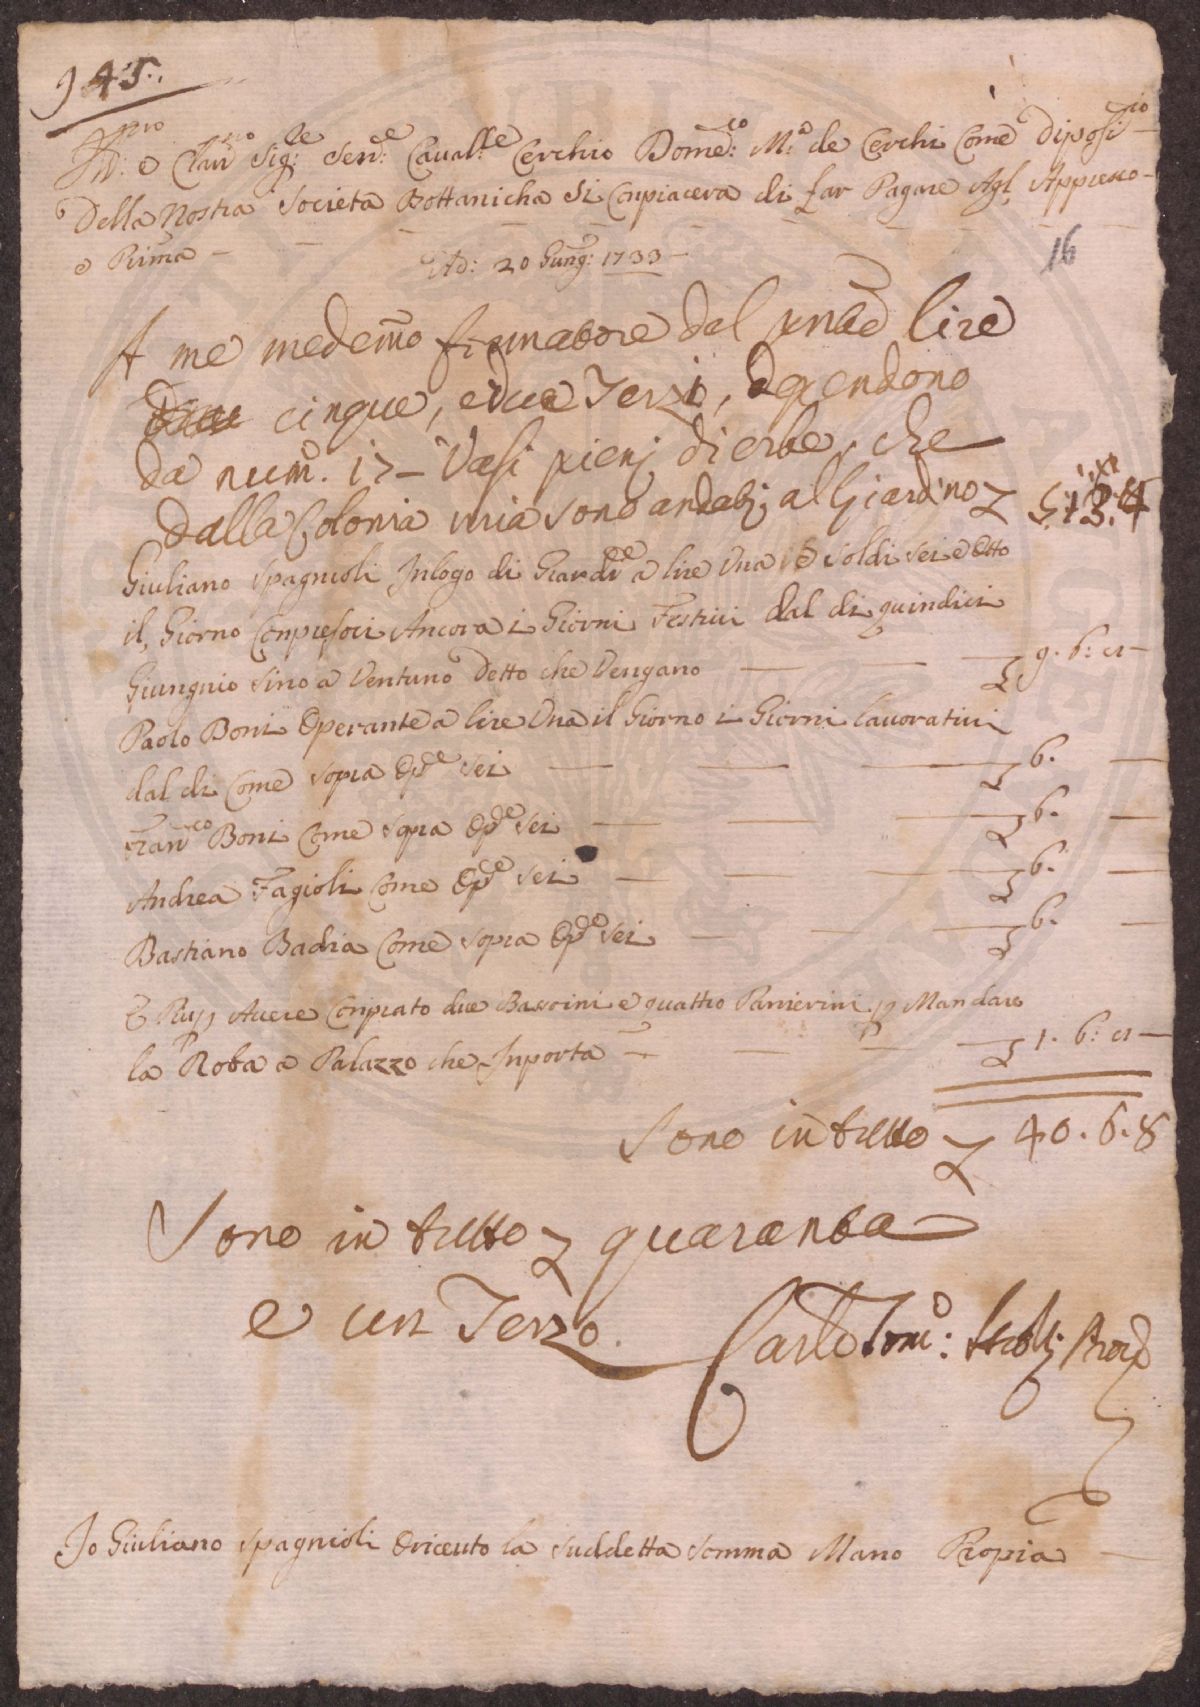 145.
Ill.mo e Clar.mo Sig.le Sen.e Cavall.e Cerchio Dome.co M.a de Cerchi Come Diposi.io
Della Nostra Societa Bottanicha Si Conpiacera di far Pagare Agl, Appresso
e Prima Ad: 20 Giung: 1733
16
A me medemo firmatore dal pnte lire
cinque, e due Terzi, dependono
da num. 17 Vasi pieni di erbe, che
dalla Colonia mia sono andati al Giardino
Giuliano Spagnioli Inlogo di Giardi.e a lire Una e Soldi sei e Otto
il, Giorno Conpresoci Ancora i Giorni Festivi dal di quindici
Giungnio Sino a Ventuno Detto che Vengano 9. 6: 8
Paolo Boni Operante a lire Una il Giorno i Giorni lavorativi
dal di Come Sopra Op.e Sei 6.
Fran.co Boni Come Sopra Op.e Sei 6.
Andrea Fagioli Come Op.e Sei 6.
Bastiano Badia Come Sopra Op.e Sei 6.
E Piu p Avere Conprato due Bassoini e quattro Panierini p Mandare
la Roba a Palazzo che Inporta 1. 6: 8
Sono in tutto 40. 6. 8
Sono in tutto quaranta
e un Terzo.
Carlo Tom.o:
Io Giuliano Spagnioli O riceuto la Suddetta Somma Mano Propia